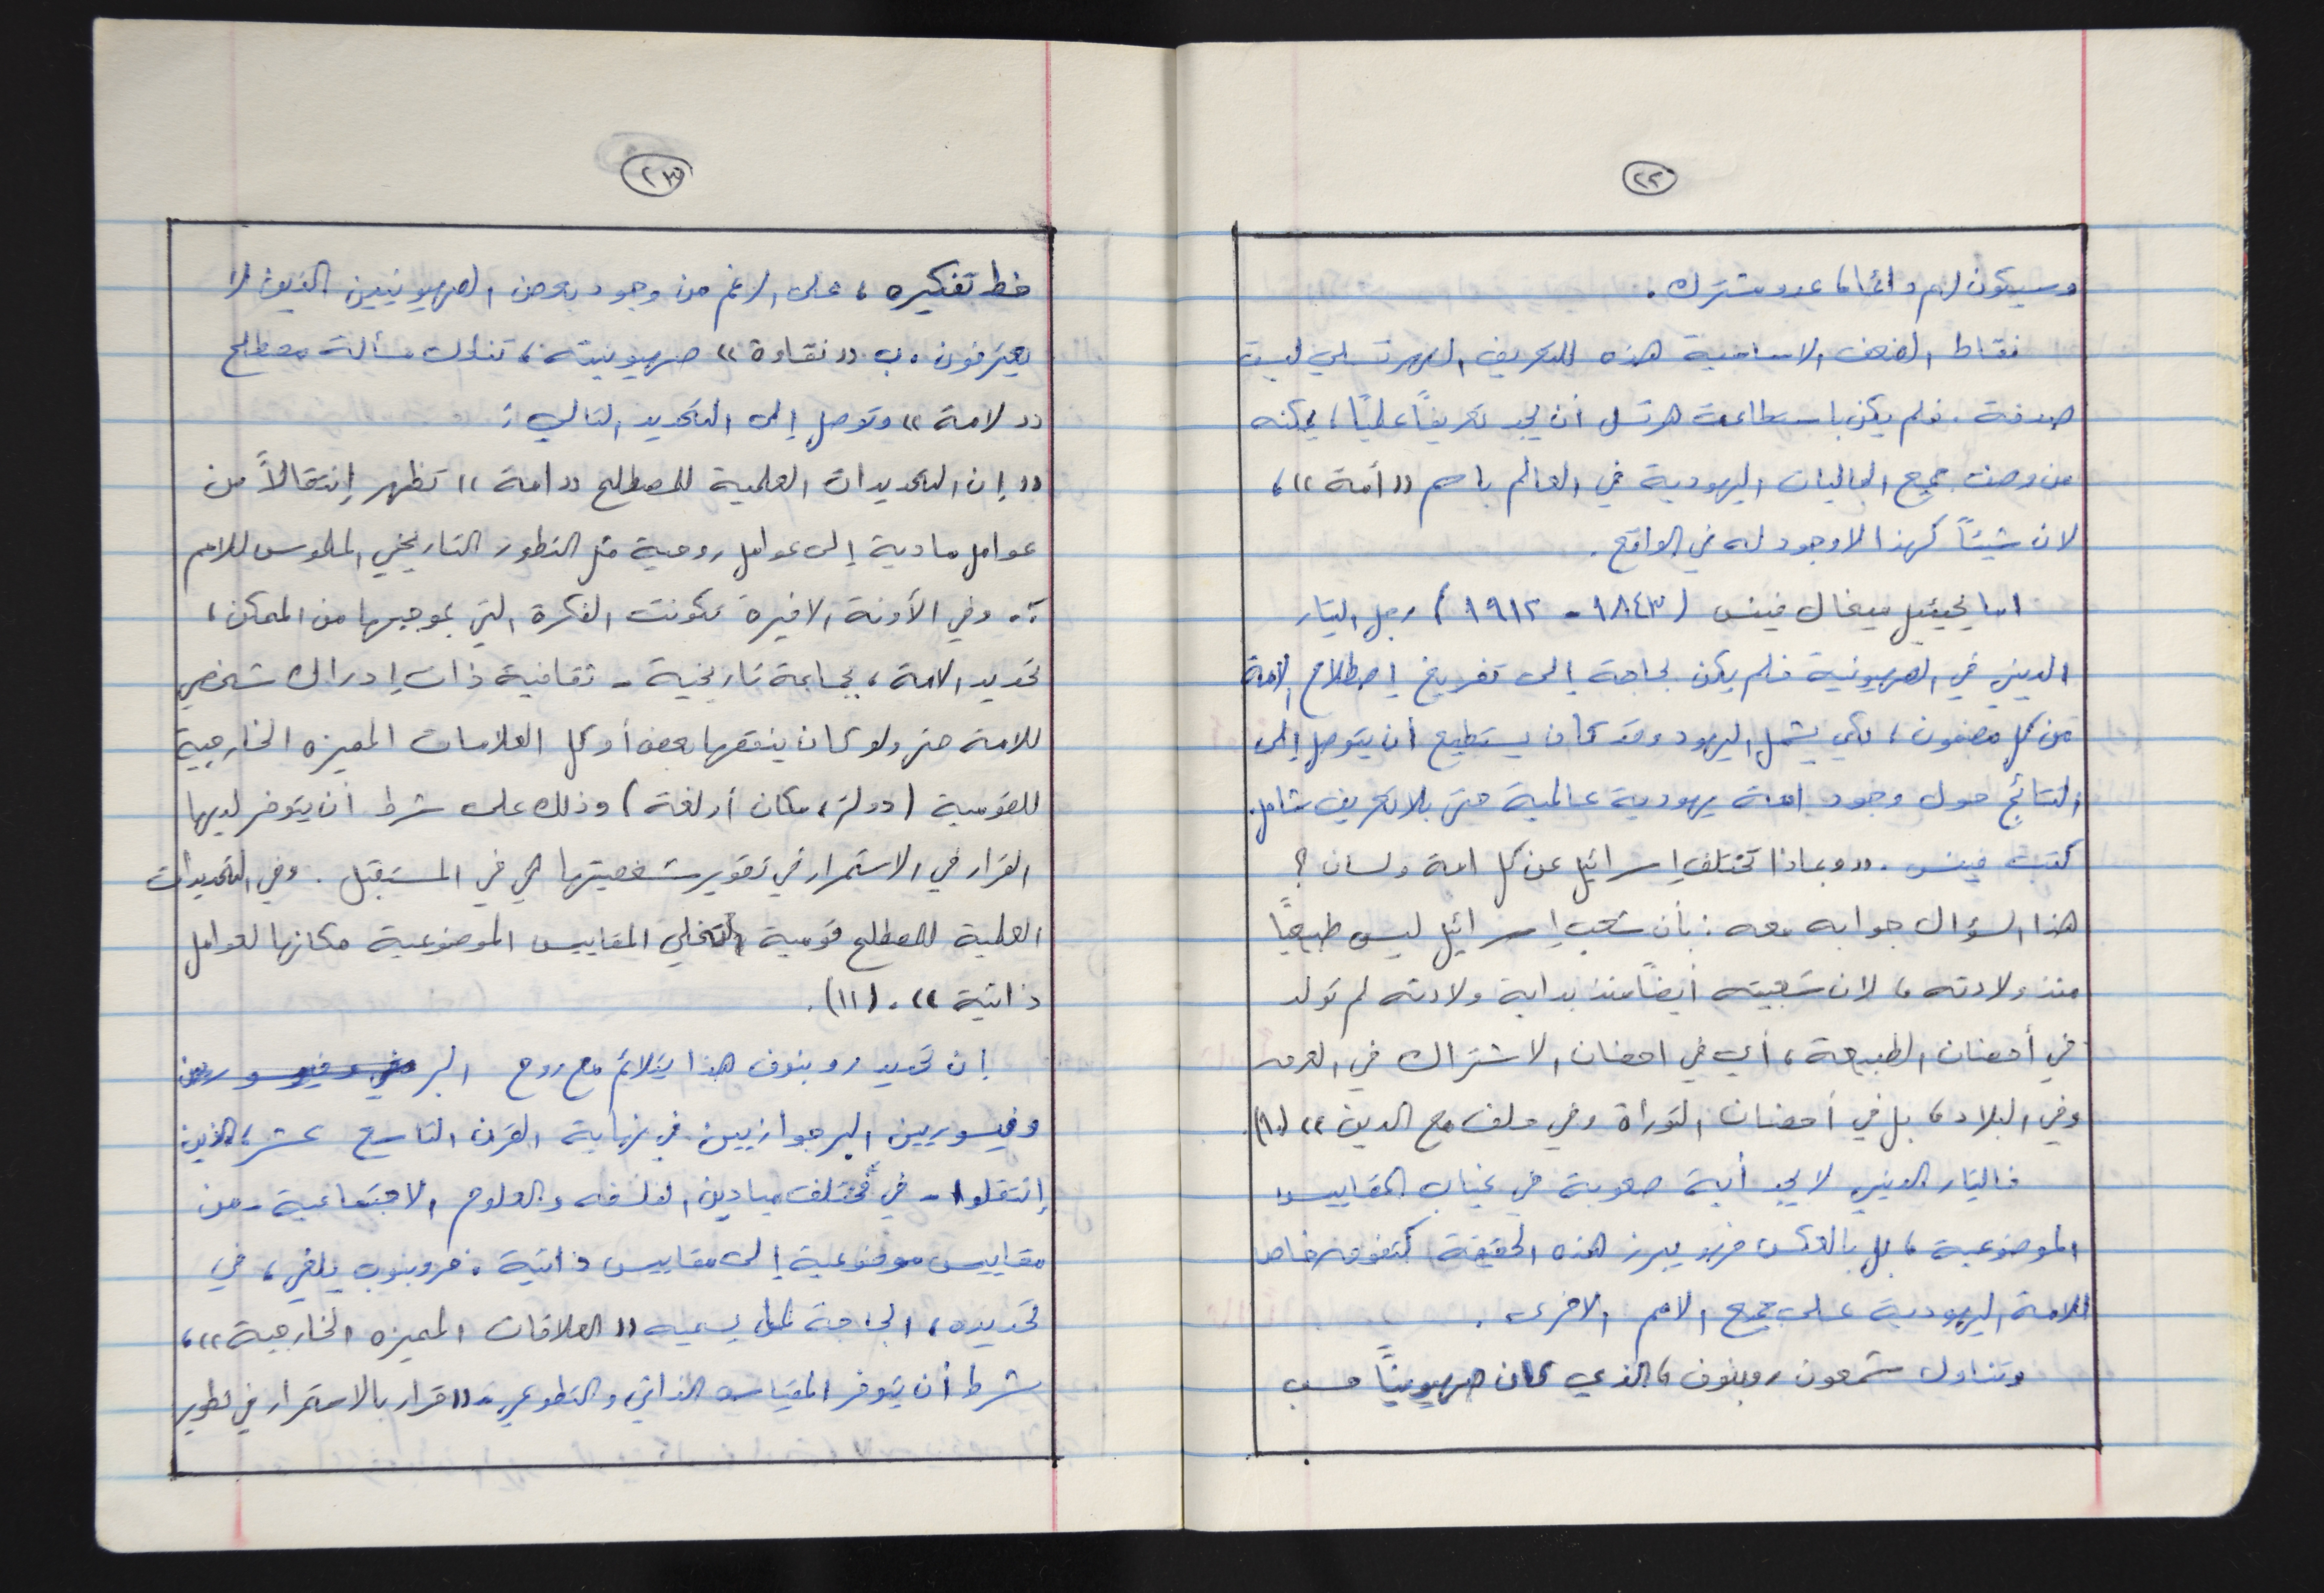 ٢٢
وسيكون لهم دائما، عدو مشترك.
نقاط الضعف الاساسية هذه للتعريف الهرتسلي ليست
صدفة. فلم يكن باستطاعة هرتسل أن يجد تعريفاً علمياً، يمكنه
من وصف جميع الجاليات اليهودية في العالم باسم «أمة»،
لان شيئاً كهذا لا وجود له في الواقع.
اما يحيئيل ميخال فينس (١٨٤٣ - ١٩١٢) رجل التيار
الديني في الصهيونية فلم يكن بحاجة إلى تفريغ إصطلاح الامة
من كل مضمون، لكي يشمل اليهود وقد كان يستطيع أن يتوصل إلى
النتائج حول وجود امة يهودية عالمية حتى بلا تعريف شامل.
كتب فينس. «وبماذا تختلف إسرائيل عن كل امة ولسان؟
هذا السؤال جوابه معه: بأن شعب إسرائيل ليس طبيعياً
منذ ولادته، لان شعبيته أيضاً منذ بداية ولادته لم تولد
في أحضان الطبيعة، أي في احضان الاشتراك في العرق
وفي البلاد، بل في أحضان التوراة وفي حلف مع الدين» (١٠).
فالتيار الديني لا يجد أية صعوبة في غياب المقاييس
الموضوعية، بل بالعكس فهو يبرز هذه الحقيقة كتفوق خاص
للامة اليهودية على جميع الامم الاخرى.
وتناول شمعون روبنوف، الذي كان صهيونياً حسب
٢٣
خط تفكيره، على الرغم من وجود بعض الصهيونيين الذين لا
يعترفون ب «نقاوة» صهيونيته، تناول مسألة مصطلح
«الامة» وتوصل إلى التحديد التالي:
«إن التحديدات العلمية للمصطلح «امة» تظهر إنتقالاً من
عوامل مادية إلى عوامل روحية مثل التطور التاريخي الملموس للامم
.. وفي الأونة الاخيرة تكونت الفكرة التي بموجبها من الممكن،
تحديد الامة، بجماعة تاريخية - ثقافية ذات إدراك شخصي
للامة حتى ولو كان ينقصها بعض أو كل العلامات المميزه الخارجية
للقومية (دولة، مكان أو لغة) وذلك على شرط أن يتوفر لديها
القرار في الاستمرار في تطوير شخصيتها هي في المستقبل. وفي التحديدات
العلمية للمصطلح قومية تخلي المقاييس الموضوعية مكانها لعوامل
ذاتية». (١١).
إن تحديد روبنوف هذا يتلائم مع روح البر
وفيسوريين البرجوازيين في نهاية القرن التاسع عشر، الذين
إنتقلوا - في مختلف ميادين الفلسفه والعلوم الاجتماعية - من
مقاييس موضوعية إلى مقاييس ذاتية. فروبنوف يلغي، في
تحديده، الحاجة لما يسميه «العلاقات المميزه الخارجية»،
شرط أن يتوفر المقياس الذاتي والتطوعي - «قرار بالاستمرار في تطوير